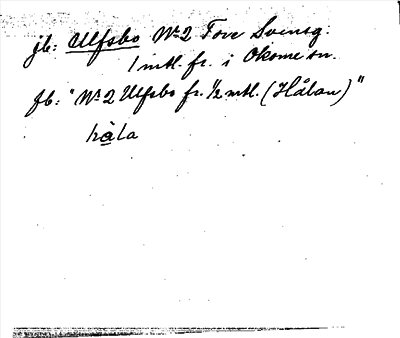 jb: Ulfsbo No 2 Tore Svensg.
1 mtl. fr. i Okome sn.
fb: "No 2 Ulfsbo fr. 1/2 mtl. (Hålan)"
hàla